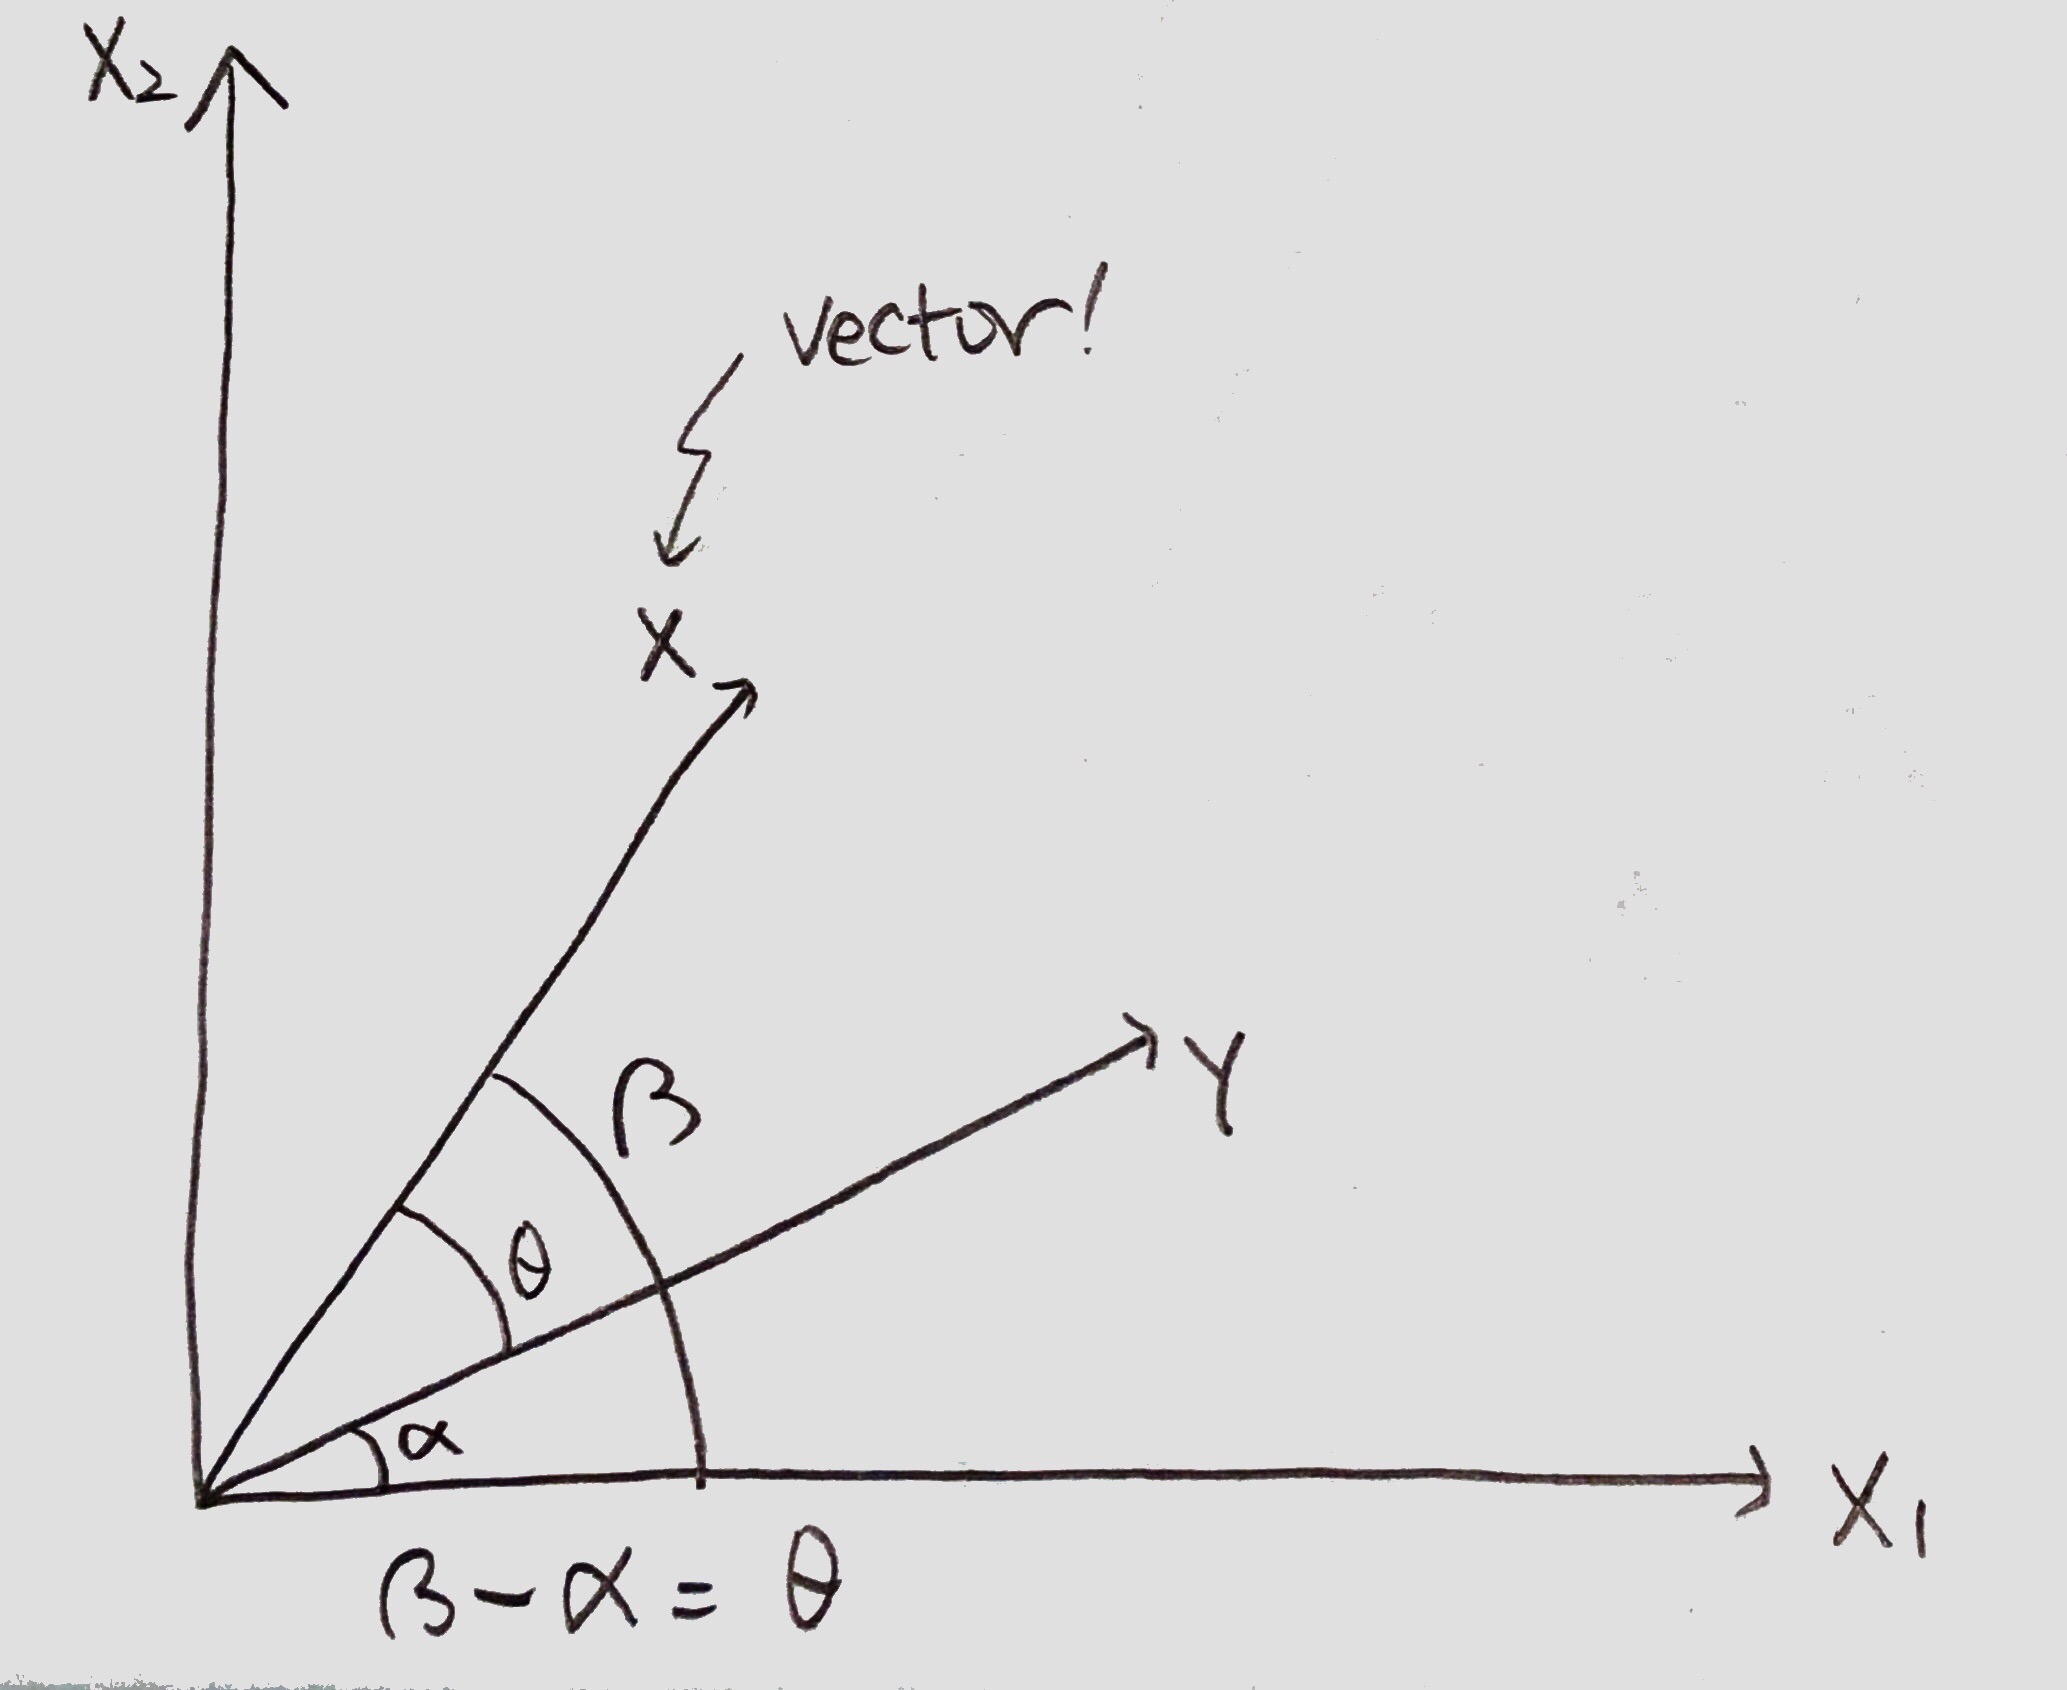 X₂
vector!
X
Y
β
θ
α
X₁
β - α = θ